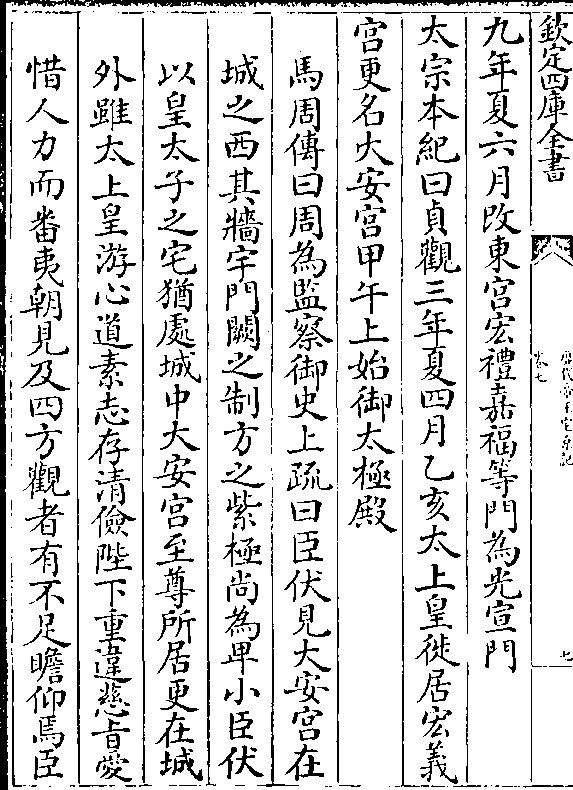 欽定四庫全書
歷代帝王宅京記
卷七
七
九年夏六月改東宮宏禮嘉福等門為光宣門
太宗本紀曰貞觀三年夏四月乙亥太上皇徙居宏義
宮更名大安宮甲午上始御太極殿
馬周傳曰周為監察御史上疏曰臣伏見大安宮在
城之西其牆宇門闕之制方之紫極尚為卑小臣伏
以皇太子之宅猶處城中大安宮至尊所居更在城
外雖太上皇游心道素志存清儉陛下重違慈旨愛
惜人力而番夷朝見及四方觀者有不足瞻仰焉臣